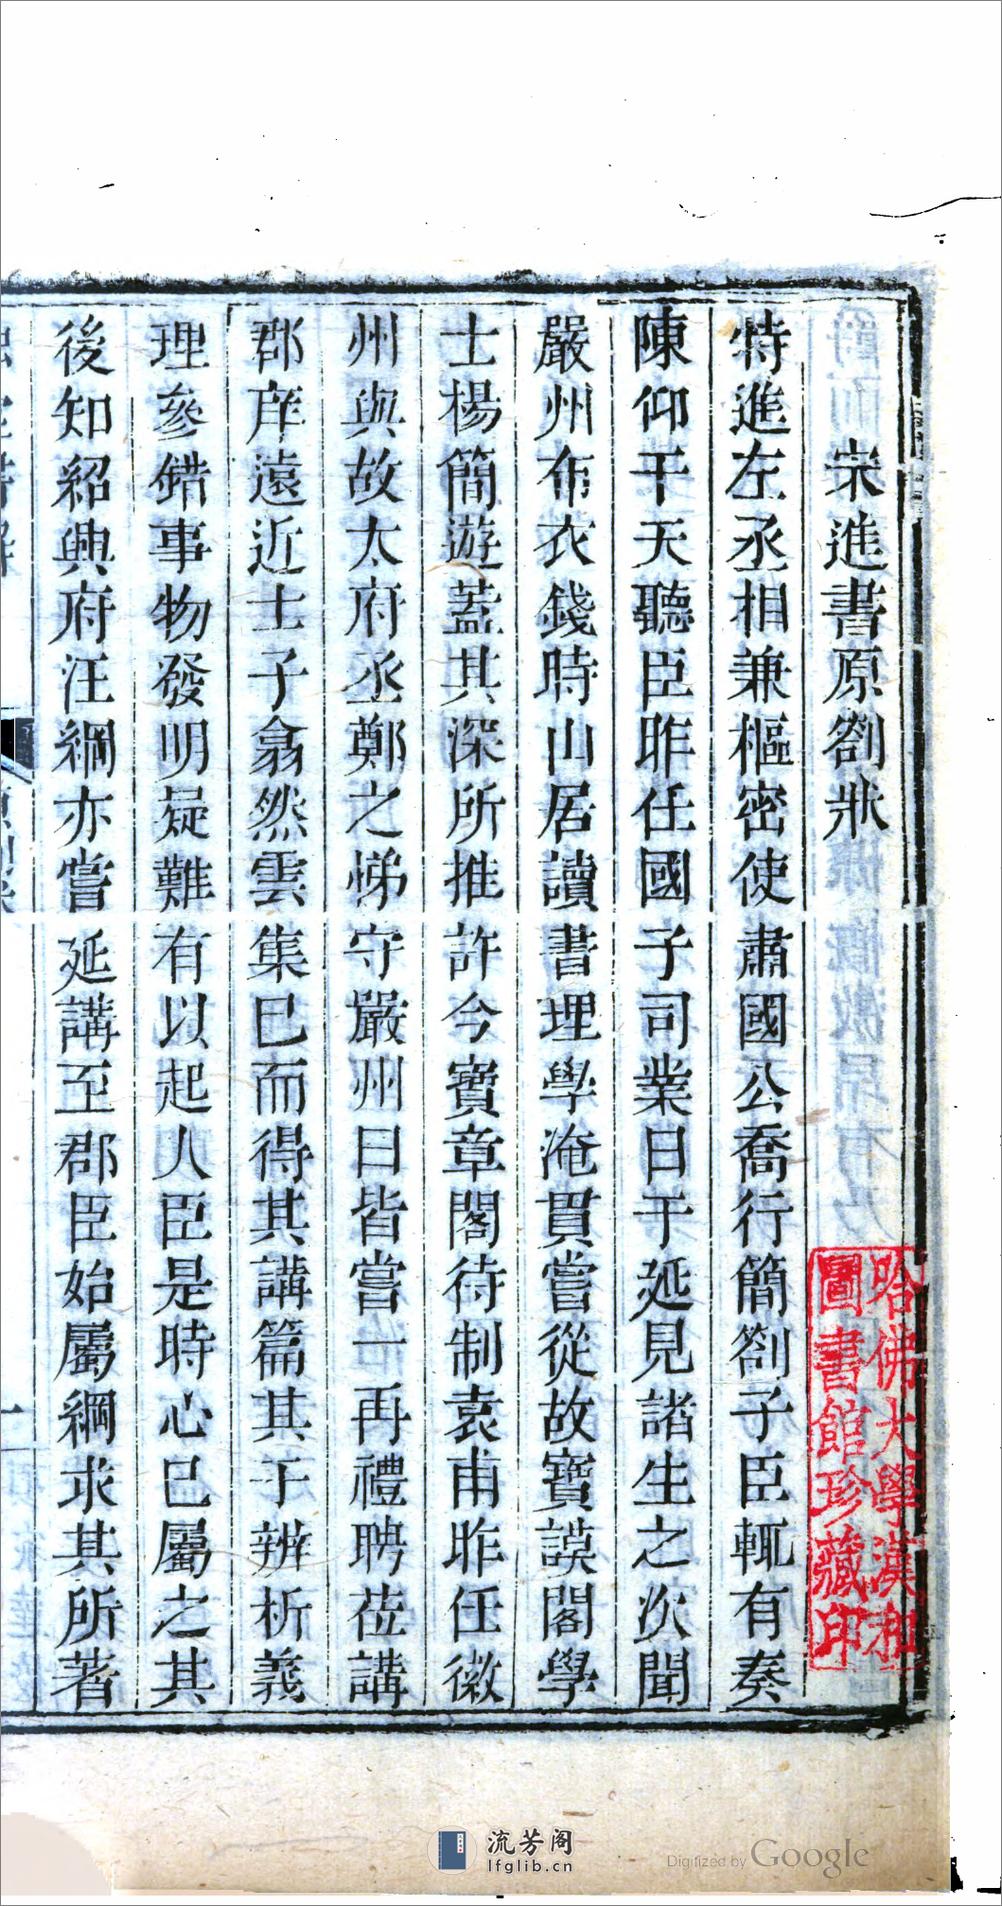 宋進書原劄狀
特進左丞相兼樞密使肅國公喬行簡劄子臣輒有奏
陳仰干天聽臣昨任國子司業日于延見諸生之次聞
嚴州布衣錢時山居讀書理學淹貫嘗從故寶謨閣學
士楊簡遊蓋其深所推許今寶章閣待制袁甫昨任徽
州與故太府丞鄭之悌守嚴州日皆嘗一再禮聘莅講
郡庠遠近士子翕然雲集已而得其講篇其于辨析義
理參錯事物發明疑難有以起人臣是時心已屬之其
後知紹興府汪綱亦嘗延講至郡臣始屬綱求其所著
哈佛大學漢和
圖書館珍藏印
流芳阁
lfglib.cn
Digitized by Google